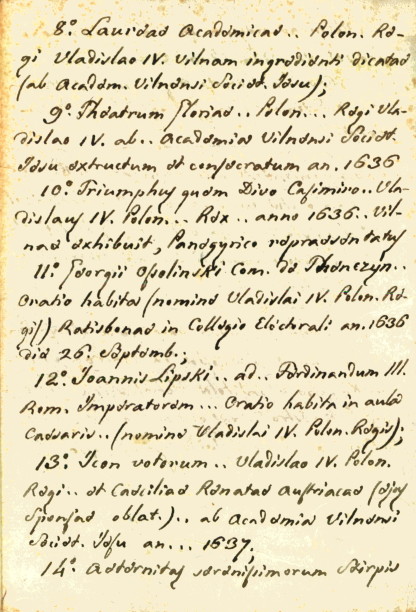 8º. Laureae Academicae.. Polon. Re-
gi Vladislao IV. Vilnam ingredienti dicatae
(ab Academ. Vilnensi Societ. Jesu);
9º. Theatrum Gloriae.. Polon... Regi Vla-
dislao IV. ab.. Academia Vilnensi Societ.
Jesu extructum et consecratum an. 1636
10º. Triumphus quem Divo Casimiro.. Vla-
dislaus IV. Polon... Rex.. anno 1636.. Vil-
nae exhibuit, Panegyrico repraesentatus
11º. Georgii Ossolinski Com. de Thenczyn..
Oratio habita (nomine Vladislai IV. Polon. Re-
gis) Ratisbonae in Collegio Electorali an. 1636
die 26. Septemb.;
12º. Joannis Lipski.. ad.. Ferdinandum III.
Rom. Imperatorem... Oratio habita in aula
Caesaris.. (nomine Vladislai IV. Polon. Regis);
13º. Icon votorum.. Vladislao IV. Polon.
Regi.. et Caeciliae Renatae Austriacae (ejus
sponsae oblat.).. ab Academia Vilnensi
Societ. Jesu an... 1637;
14º. Aeternitas serenissimorum Stirpis